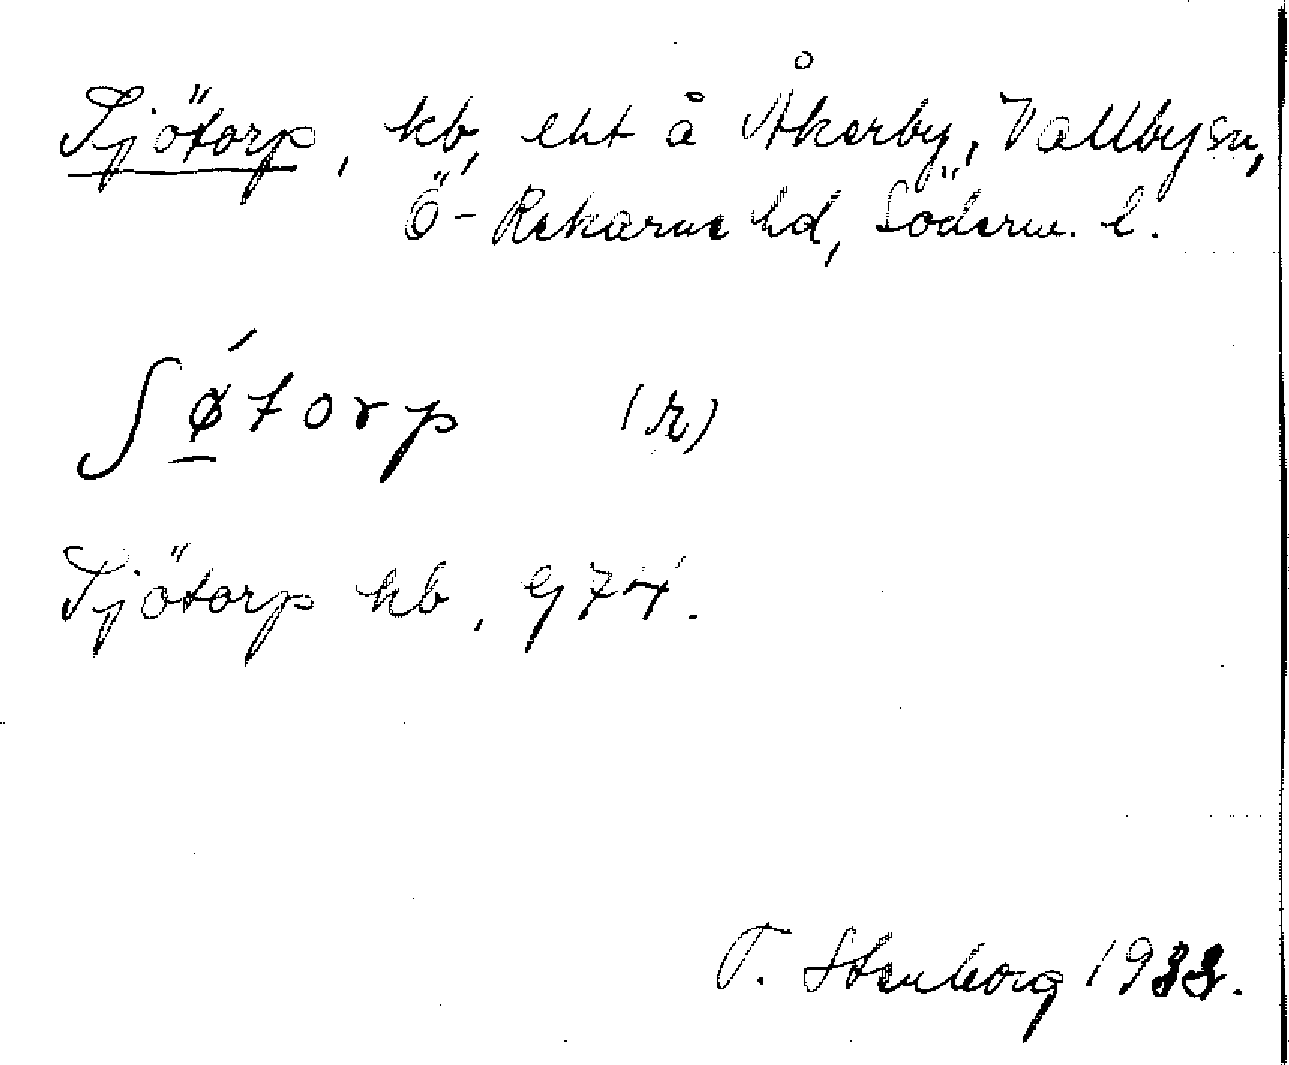 Tjötorp, kb, eht å Åkerby, Vallby sn,
Ö-Rekarne hd, Söderm. l.
ʃǿ̱torp (r)
Tjötorp kb, GJ 74.
T. Stenborg 1933.